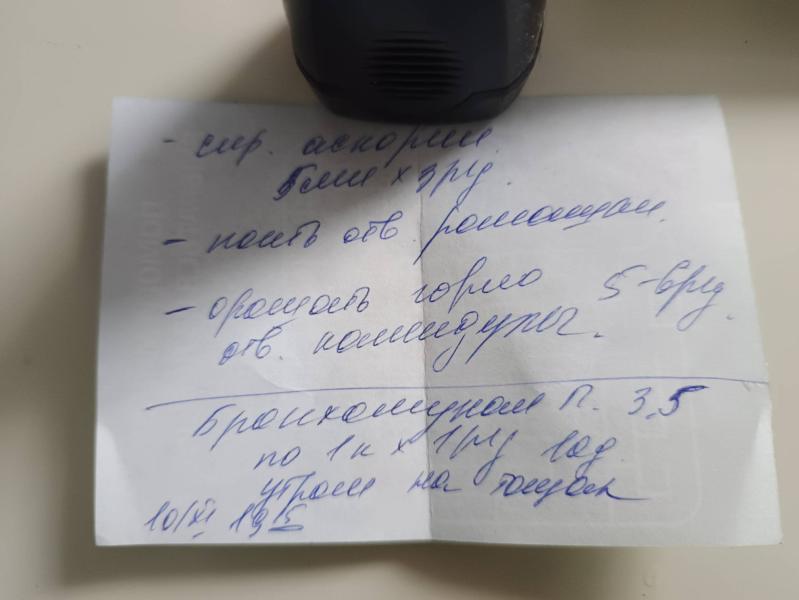 - сир. аскорил
5мл х 3р/д.
- поить отв. ромашки.
- орошать горло 5-6р/д.
отв. календулы.
Бронхомунал п. 3,5
по 1к х 1р/д 10д.
утром на тощак